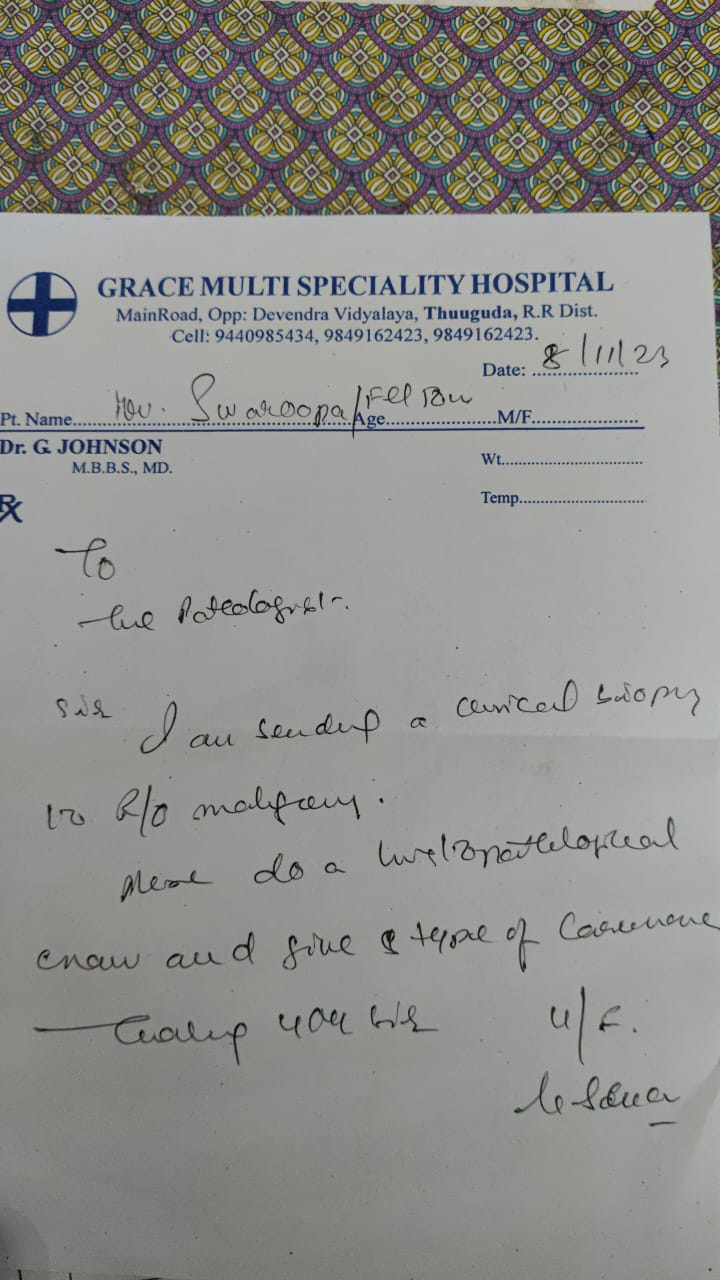 GRACE MULTI SPECIALITY HOSPITAL
MainRoad, Opp: Devendra Vidyalaya, Thuuguda, R.R Dist.
Cell: 9440985434, 9849162423, 9849162423.
Date: 8/11/23
Pt. Name Swaroopa/ Age M/F
Dr. G. JOHNSON
M.B.B.S., MD.
Wt.
Rx
Temp.
To
the Pathologist.
Sir
I am sending a cervical biopsy
to R/O malignancy.
please do a histopathological
exam and give type of
Thanking you sir